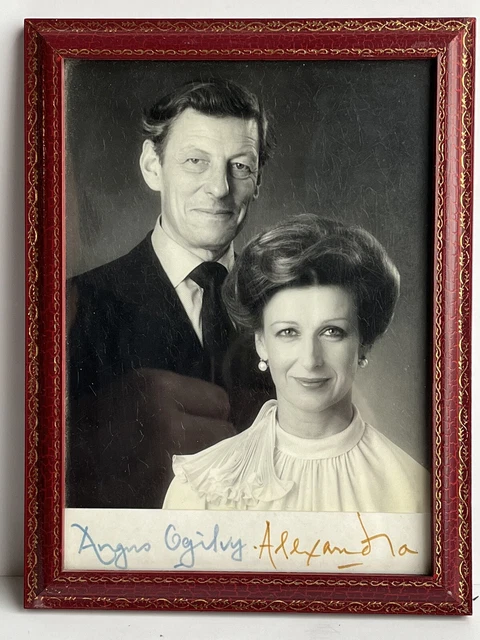 Angus Ogilvy. Alexandra